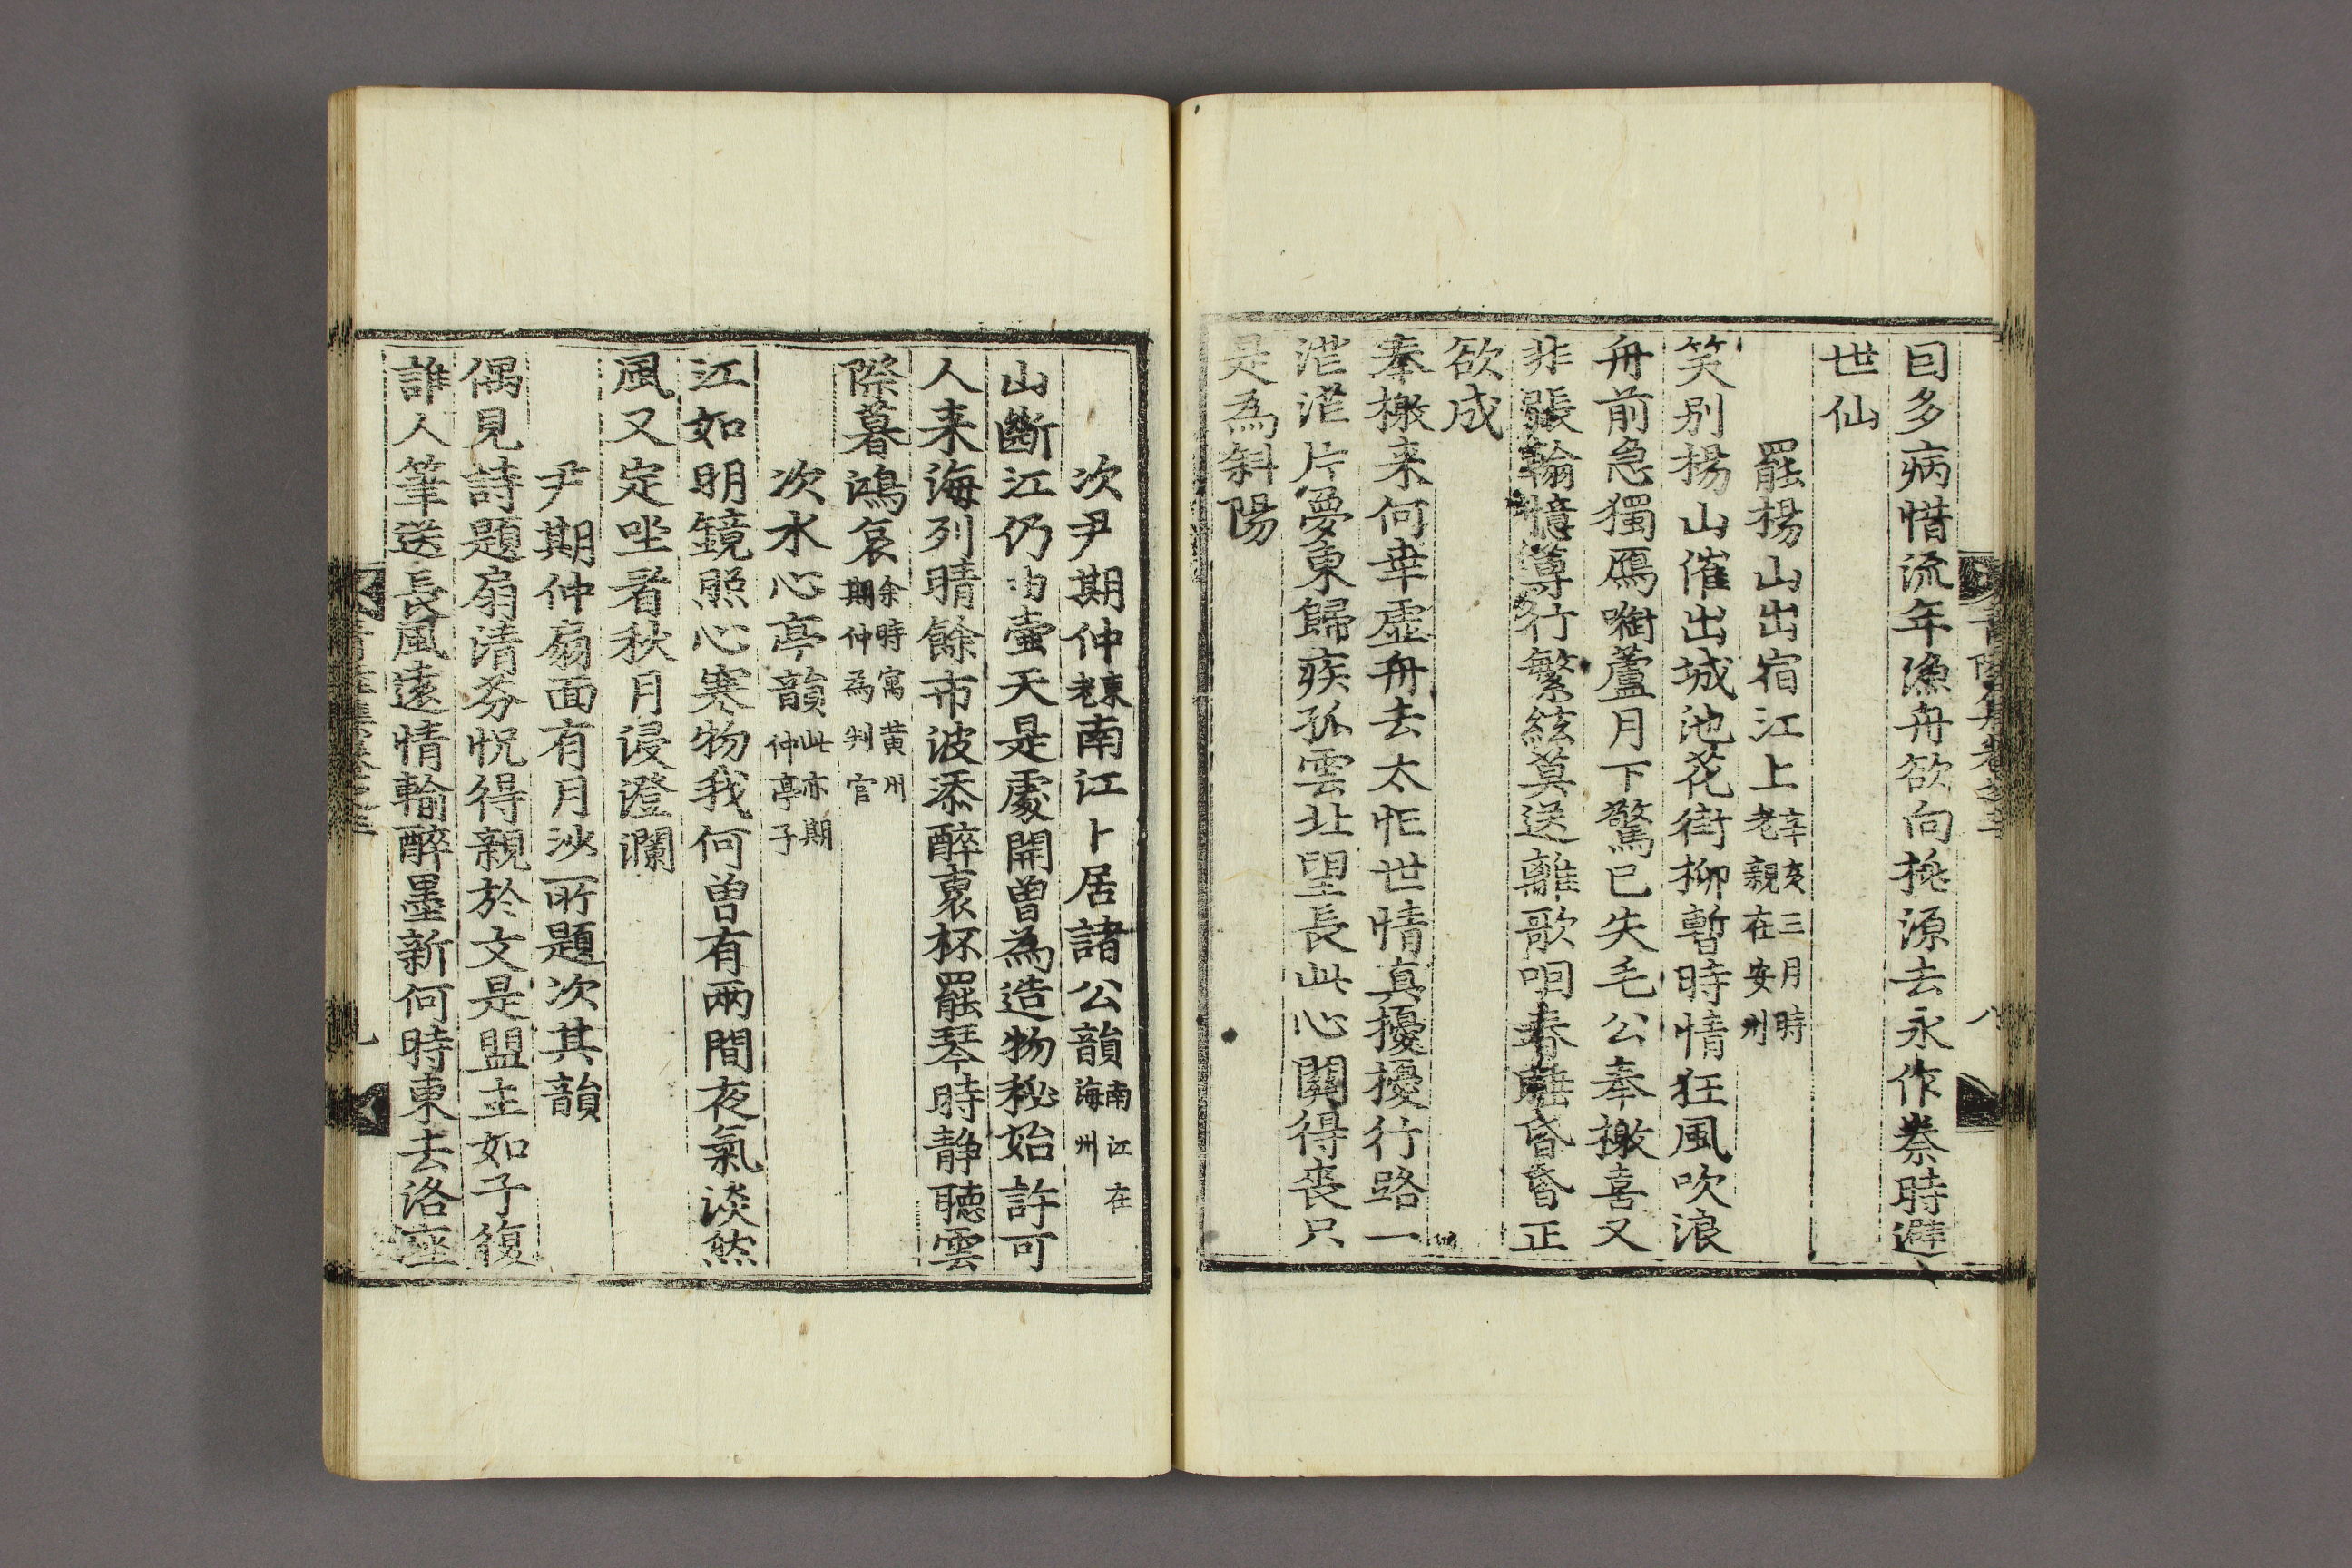 因多病惜流年漁舟欲向桃源去永作秦時避
世仙
罷楊山出宿江上辛亥三月時老親在安州
笑別楊山催出城池花街柳暫時情狂風吹浪
舟前急獨鴈啣蘆月下驚已失毛公奉檄喜又
非張翰憶蓴行繁絃莫送離歌唱春睡昏昏正
欲成
奉檄来何幸虛舟去太忙世情真擾擾行路一
茫茫片夢東歸疾孤雲北望長此心關得喪只
是為斜陽
次尹期仲東老南江卜居諸公韻南江在海州
山斷江仍由壷天是處開曽為造物秘始許可
人来海列晴餘布波添醉裏杯罷琴時静聽雲
際暮鴻哀余時寓黄州期仲為判官
次水心亭韻此亦期仲亭子
江如明鏡照心寒物我何曽有兩間夜氣淡然
風又定坐看秋月浸澄瀾
尹期仲扇面有月沙所題次其韻
偶見詩題扇清芬怳得親於文是盟主如子復
誰人筆送長風遠情輸醉墨新何時東去洛座
八
九